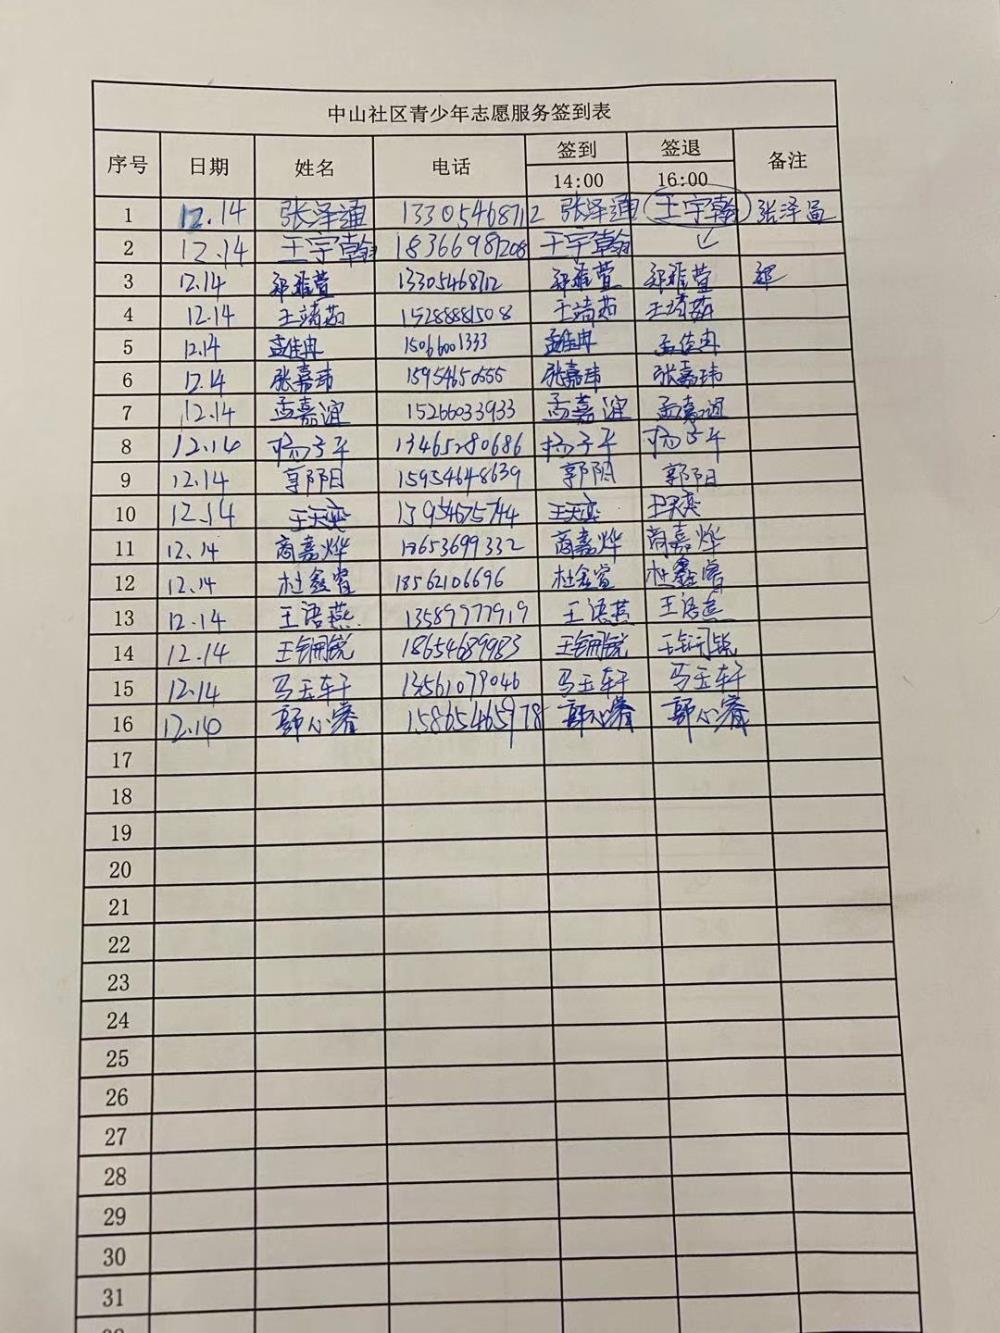 中山社区青少年志愿服务签到表
序号 日期 姓名 电话 签到 签退 备注
14:00 16:00
1 12.14 张泽通 13305468712 张泽通 王宇翰 张泽通
2 12.14 王宇翰 18366981208 王宇翰
3 12.14 郑雅萱 13305468712 郑雅萱 郑雅萱
4 12.14 王靖茹 15288881508 王靖茹 王靖茹
5 12.14 孟佳冉 15066001333 孟佳冉 孟佳冉
6 12.14 张嘉玮 15954650555 张嘉玮 张嘉玮
7 12.14 孟嘉谊 15266033933 孟嘉谊 孟嘉谊
8 12.14 杨子平 13465280686 杨子平 杨子平
9 12.14 郭阳 15954648639 郭阳 郭阳
10 12.14 王天奕 13954675744 王天奕 王天奕
11 12.14 商嘉烨 18653699332 商嘉烨 商嘉烨
12 12.14 杜鑫睿 18562106696 杜鑫睿 杜鑫睿
13 12.14 王语燕 13589777919 王语燕 王语燕
14 12.14 18654689983
15 12.14 马玉轩 13561079046 马玉轩 马玉轩
16 12.14 郭心睿 15865465978 郭心睿 郭心睿
17
18
19
20
21
22
23
24
25
26
27
28
29
30
31